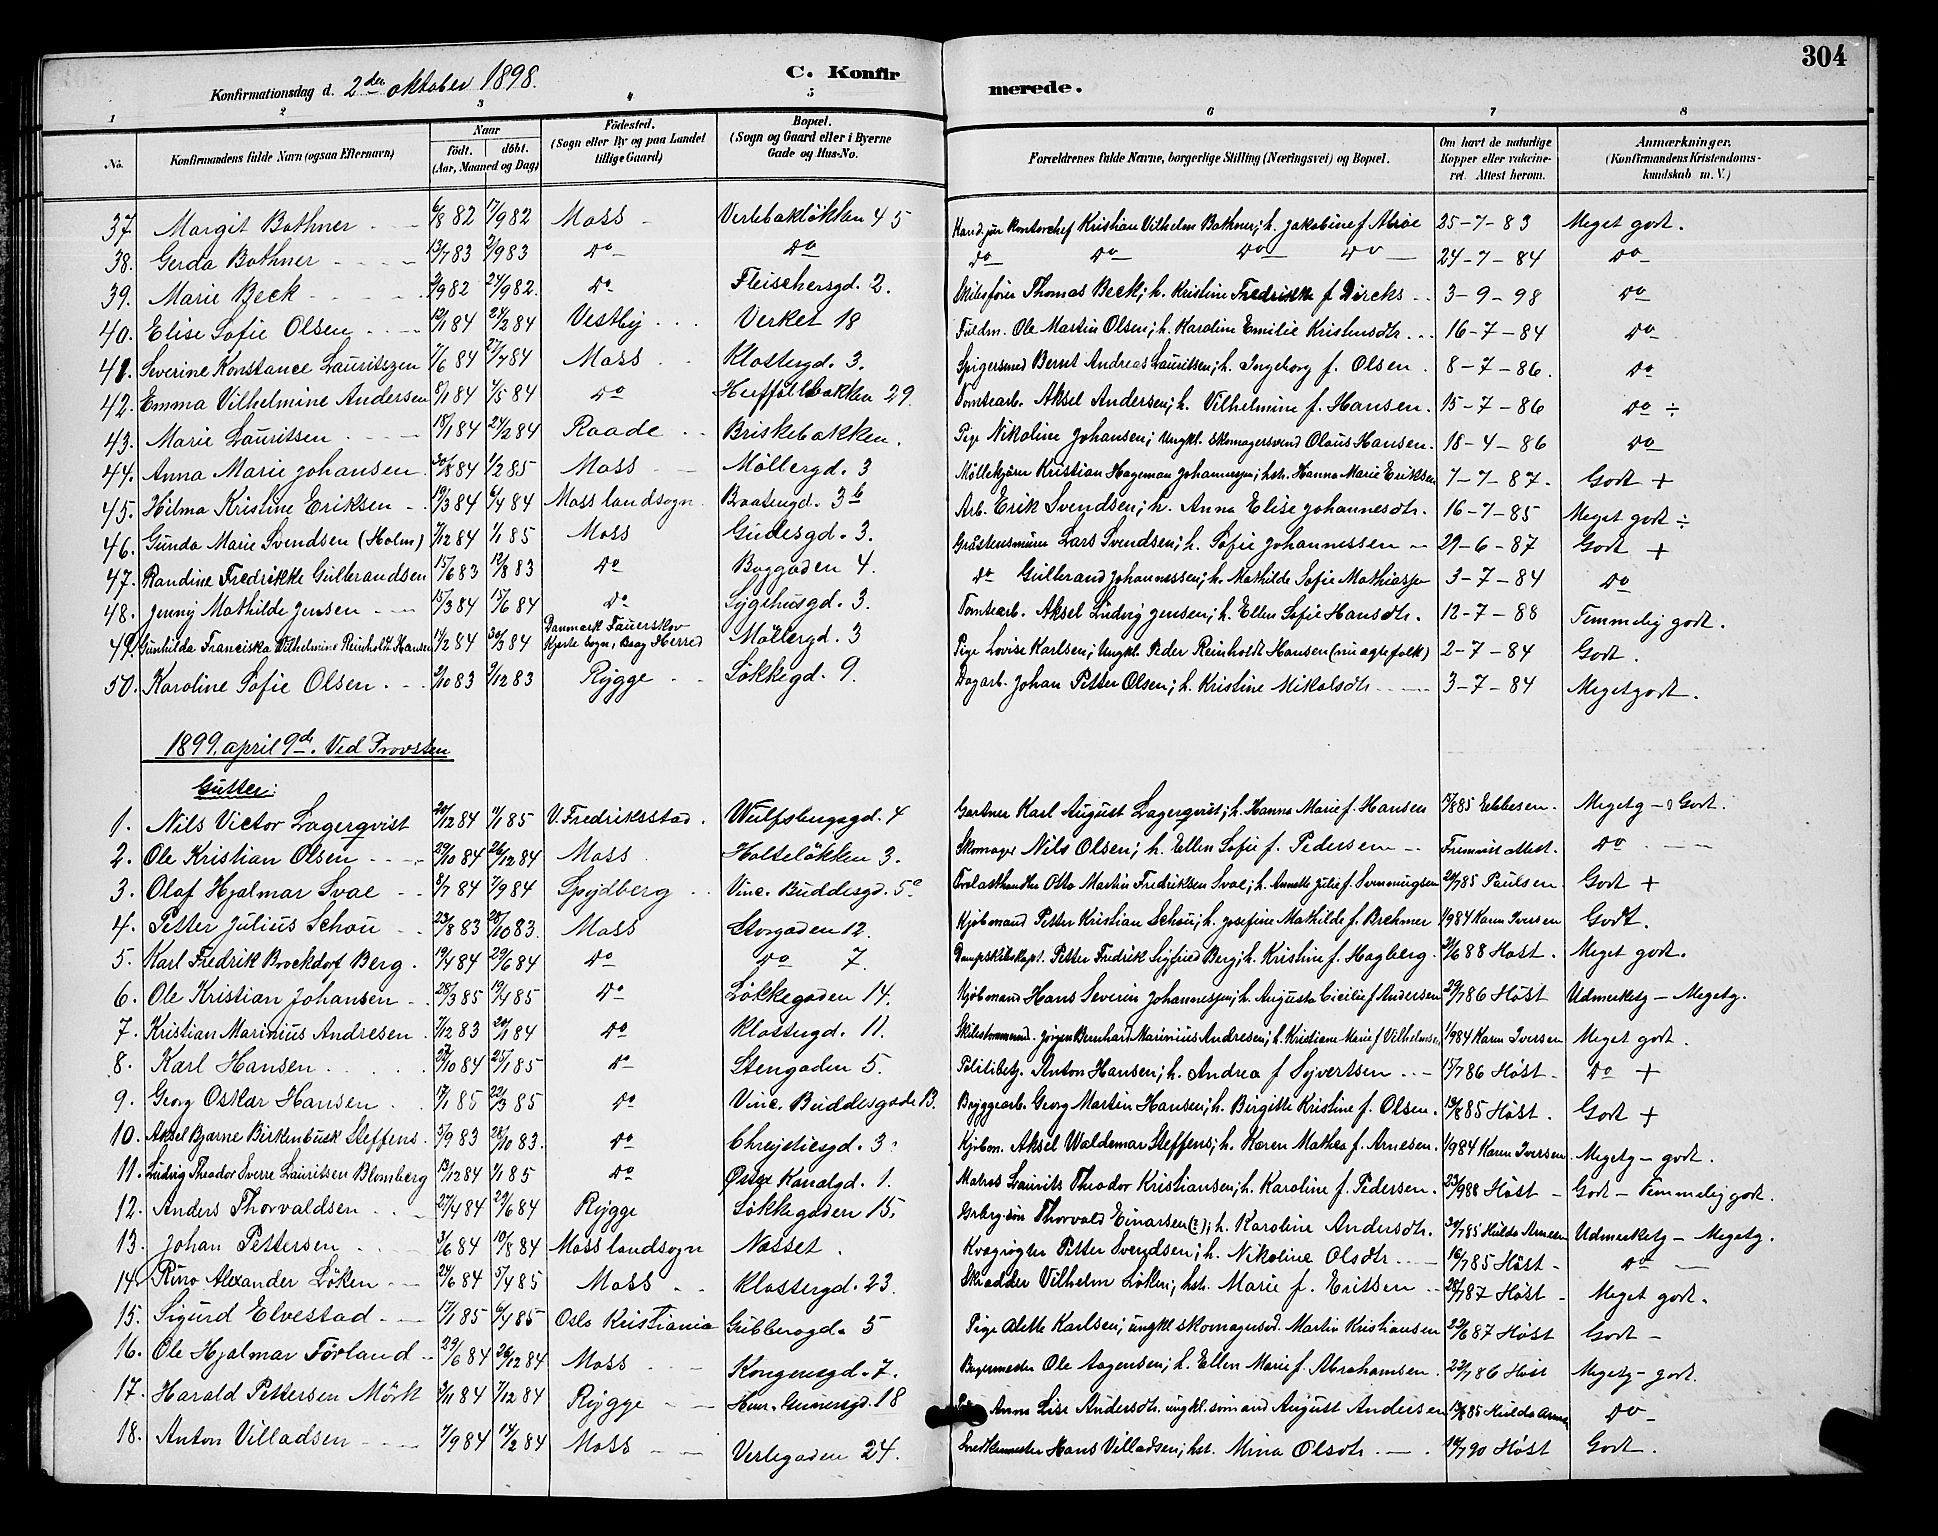 304
C. Konfirmerede.
Konfirmationsdag d. 2den oktober 1898.
1 2 3 4 5 6 7 8
No. Konfirmandens fulde Navn (ogsaa Efternavn) Naar födt. döbt. (Aar, Maaned og Dag) Födested. (Sogn eller By og paa Landet tillige Gaard) Bopæl. (Sogn og Gaard eller i Byerne Gade og Hus-No. Forældrenes fulde Navne, borgerlige Stilling (Næringsvei) og Bopæl. Om havt de naturlige Kopper eller vakcineret. Attest herom. Anmærkninger. (Konfirmandens Kristendomskundskab m. V.)
37. Margit Bothner 6/8 82 17/9 82 Moss Verlebakløkken 45 Kontorchef Kristian Vilhelm Bothner; h. Jakobine f. 25-7-83 Meget godt.
38. Gerda Bothner 13/7 83 2/9 83 Do Do Do Do Do Do 24-7-84 Do
39. Marie Beck 3/9 82 24/9 82 Do Fleischersgd. 2. Skibsfører Thomas Beck; h. Kristine Fredrikke f. Dircks 3-9-98 Do
40. Elise Sofie Olsen 12/1 84 24/2 84 Vestby Verket 18 Fuldm. Ole Martin Olsen; h. Karoline Emilie Kristensdtr. 16-7-84 Do
41. Severine Konstance Lauritszen 7/6 84 27/7 84 Moss Klostergd. 3. Spigersmed Bernt Andreas Lauritsen; h. Ingeborg f. Olsen 8-7-86. Do
42. Emma Vilhelmine Andersen 8/1 84 4/5 84 Do 29 Tomtearb. Aksel Andersen; h. Vilhelmine f. Hansen. 15-7-86 Do ÷
43. Marie Lauritsen 18/1 84 24/2 84 Raade Briskebakken. Pige Nikoline Johansen; Ungkl. Skomagersvend Olaus Hansen. 18-4-86 Do
44. Anna Marie Johansen 30/8 84 1/2 85 Moss Møllergd. 3 Møllekjører Kristian Hageman Johannesen; hstr. Hanna Marie Eriksen 7-7-87. Godt +
45. Hilma Kristine Eriksen 19/3 84 6/4 84 Moss landsogn Baatengd. 3b Arb. Erik Svendsen; h. Anna Elise Johannesdtr. 16-7-85 Meget godt ÷
46. Gunda Marie Svendsen (Holm) 7/12 84 1/1 85 Moss Gudesgd. 3. Gråstensmurer Lars Svendsen; h. Sofie Johannessen 29-6-87 Godt +
47. Randine Fredrikke Gulbrandsen 15/6 83 12/8 83 Do Boggaden 4. Do Gulbrand Johannessen; h. Mathilde Sofie Mathiasen 3-7-84 Do
48. Jenny Mathilde Jensen 15/3 84 15/6 84 Do Sygehusgd. 3. Tomtearb. Aksel Ludvig Jensen; h. Ellen Sofie Hansdtr. 12-7-88 Temmelig godt.
49. Gunhilda Franciska Vilhelmine Reinholdt Hansen 11/2 84 30/3 84 Danmark Fauerskov Kjerte Sogn, Baag Herred Møllergd. 3 Pige Lovise Karlsen; Ungkl. Peder Reinholdt Hansen (nu ægtefolk) 2-7-84 Godt.
50. Karoline Sofie Olsen 2/10 83 2/12 83 Rygge Løkkegd. 9. Dagarb. Johan Petter Olsen; h. Kristine Mikalsdtr. 3-7-84 Megetgodt.
1899. april 9de. Ved Provsten
Gutter:
1. Nils Victor Lagerqvist 20/12 84 11/1 85 V. Fredriksstad. Wulfsbergsgd. 4 Gartner Karl August Lagerqvist; h. Hanna Marie f. Hansen 15/8 85 Eebbesen. Megetg - Godt.
2. Ole Kristian Olsen 29/10 84 26/12 84 Moss Holteløkken 3. Skomager Nils Olsen; h. Ellen Sofie f. Pedersen Fremvist Attest. Do
3. Olaf Hjalmar Svae 8/7 84 7/9 84 Spydberg Vinc. Buddesgd. 5c Otto Martin Fredriksen Svae; h. Annette Julie f. Svenningsen 24/7 85 Paulsen. Godt +
4. Petter Julius Schou 23/8 83 28/10 83. Moss Storgaden 12. Kjøbmand Petter Kristian Schou; h. Josefine Mathilde f. Brehmer 1/9 84 Karen Iversen Godt.
5. Karl Fredrik Brockdorf Berg. 19/4 84 29/6 84 Do Do 7. Dampskibskapt. Petter Fredrik Sigfried Berg; h. Kristine f. Hagberg. 21/6 88 Høst. Meget godt.
6. Ole Kristian Johansen 28/3 85 19/4 85 Do Løkkegaden 14. Kjøbmand Hans Severin Johannessen; h. Augusta Cicilie f. Andersen 29/7 86 Høst Udmerketg - Megetg.
7. Kristian Marinius Andresen. 7/12 83 20/1 84 Do Klostergd. 11. Skibstømmermd. Jørgen Bernhard Marinius Andresen; h. Kristiane Marie f. Vilhelmsen 1/9 84 Karen Iversen Meget godt.
8. Karl Hansen 27/10 84 25/1 85 Do Stengaden 5. Politibetj. Anton Hansen; h. Andrea f. Syvertsen 15/7 86 Høst Do +
9. Georg Oskar Hansen 17/1 85 22/3 85 Do Vinc. Buddesgade 13. Bryggearb. Georg Martin Hansen; h. Birgitte Kristine f. Olsen. 19/8 85 Høst. Godt +
10. Aksel Bjarne Birkenbusk Steffens 5/9 83 28/10 83. Do Chrystiesgd. 3. Kjøbm. Aksel Waldemar Steffens; h. Karen Mathea f. Arnesen. 1/9 84 Karen Iversen Megetg - godt.
11. Ludvig Theodor Sverre Lauritsen Blomberg 13/12 84 1/1 85 Do Østre Kanalgd. 1. Matros Laurits Theodor Kristiansen; h. Karoline f. Pedersen. 23/9 88 Høst Godt - Temmelig godt.
12. Anders Thorvaldsen 27/4 84 29/6 84 Rygge Løkkegaden 15. Thorvald Einarsen (?); h. Karoline Andersdtr. 30/7 85 Hulda Arnesen Udmerketg - Megetg.
13. Johan Pettersen 3/6 84 10/8 84 Moss landsogn Nesset. Kvægrøgter Petter Svendsen; h. Nikoline Olsdtr. 16/7 85 Høst Do
14. Runo Alexander Löken 24/6 84 5/4 85 Moss Klostergd. 23. Skrædder Vilhelm Løken; hstr. Marie f. Eritsen 28/7 87 Høst Meget godt.
15. Sigurd Elvestad 17/1 85 6/4 85 Oslo Kristiania Gubberogd. 5 Pige Alette Karlsen; ungkl skomagersvd. Martin Kristiansen 22/6 87 Høst Godt
16. Ole Hjalmar Förland 29/6 84 26/12 84 Moss Kongensgd. 7. Bagermester Ole Aagensen; h. Ellen Marie f. Abrahamsen. 22/7 86 Høst Megetg - godt.
17. Harald Pettersen Mörk 2/11 84 7/12 84 Rygge Henr. Gernersgd. 18 Anna Lise Andersdtr. ungkl. sömand August Andersen 12/8 85 Hulda Arnesen Do
18. Anton Villadsen 7/9 84 14/2 84 Moss Verlegaden 24. Snedkermester Hans Villadsen; hst. Mina Olsdtr. 16/7 90 Høst Godt.